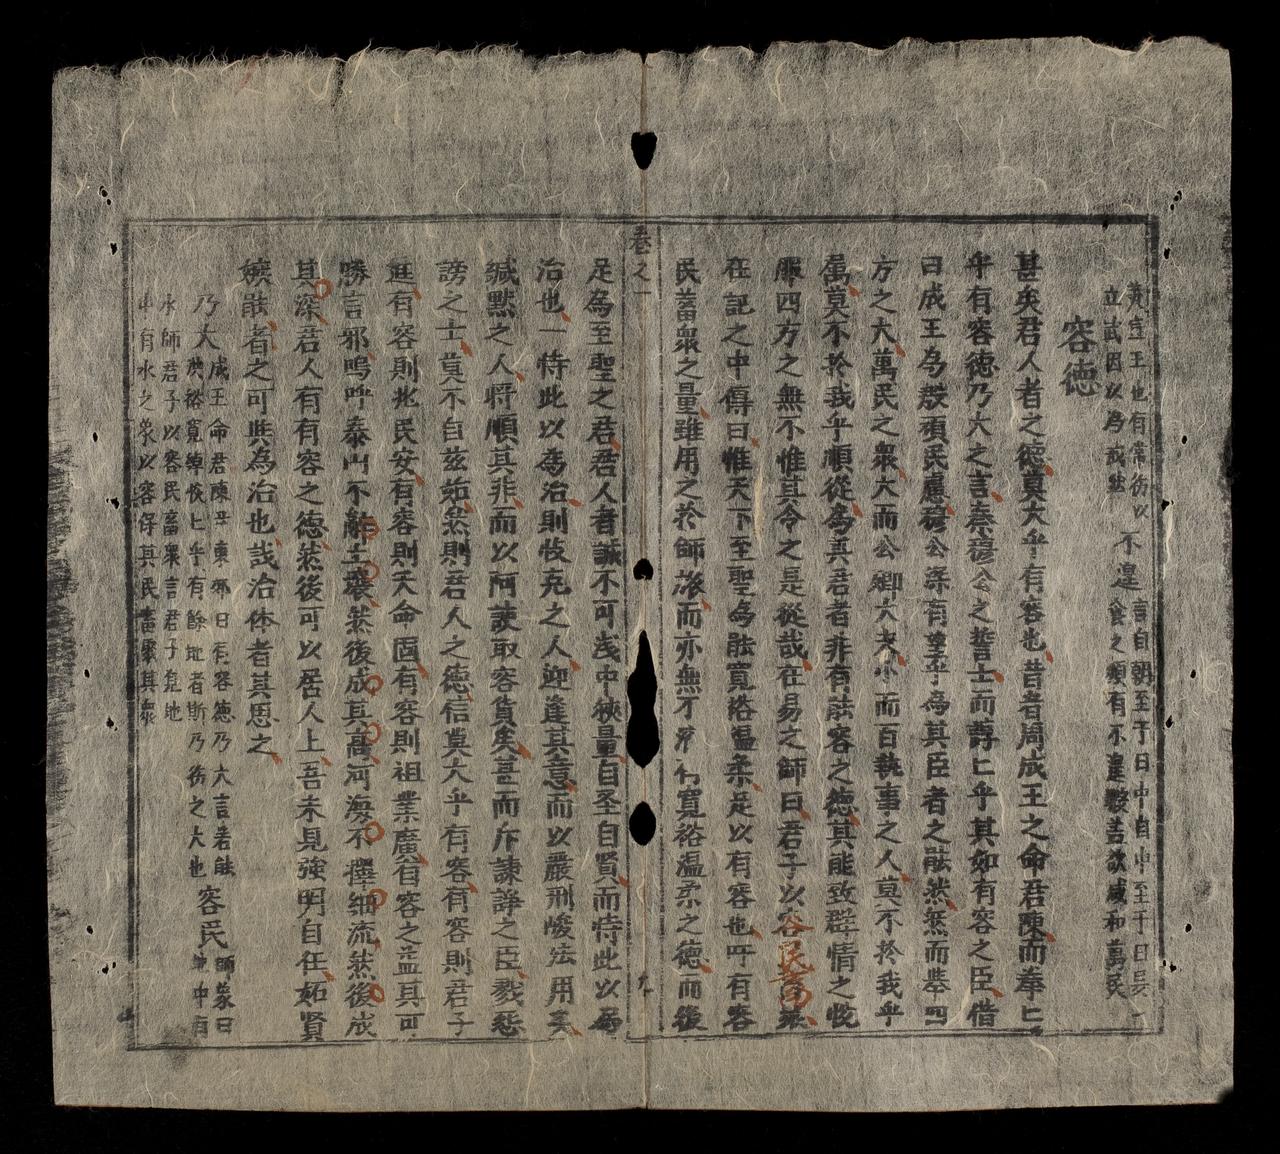 黃宣王也有常伤以
立武因以為戒然 不遑 言自朝至于日中自中至于日昃一
食之頃有不遑暇者欲咸和萬民
容德
甚矣君人者之德莫大乎有容也昔者周成王之命君陳而奉上
乎有容德乃大之言秦穆公之誓士而尊上乎其如有容之臣借
曰成王為殷頑民應穆公深有望乎為其臣者之能然然而舉四
方之大萬民之衆大而公卿大夫小而百執事之人莫不於我乎
属莫不於我乎順從為其君者非有能容之德其能致群情之悅
服四方之無不惟其令之是從哉在易之師曰君子以容民畜衆
在記之中傳曰惟天下至聖為能寬裕溫柔足以有容也吁有容
民畜衆之量雖用之於師旅而亦無才 有寬裕溫柔之德而後
卷之一
足為至聖之君君人者誠不可浅中狹量自圣自賢而恃此以為
治也一恃此以為治則悅克之人迎逢其意而以嚴刑峻法用矣
缄默之人將順其非而以阿諛取容貴矣甚而斥諫諍之臣戮惡
謗之士莫不自兹始然則君人之德信莫大乎有容有容則君子
進有容則兆民安有容則天命固有容則祖業廣有容之益其可
勝言邪嗚呼泰山不辭土壤然後成其高河海不擇細流然後成
其深君人有有容之德然後可以居人上吾未見強明自任妬賢
嫉能者之可與為治也哉治体者其思之
乃大 成王命君陳尹東郊曰有容德乃大言若能
於裕寬綽恢上乎有餘地者斯乃為之大也 容民 師象曰地中有
水師君子以容民畜衆言君子克地
中有水之象以容保其民畜聚其衆